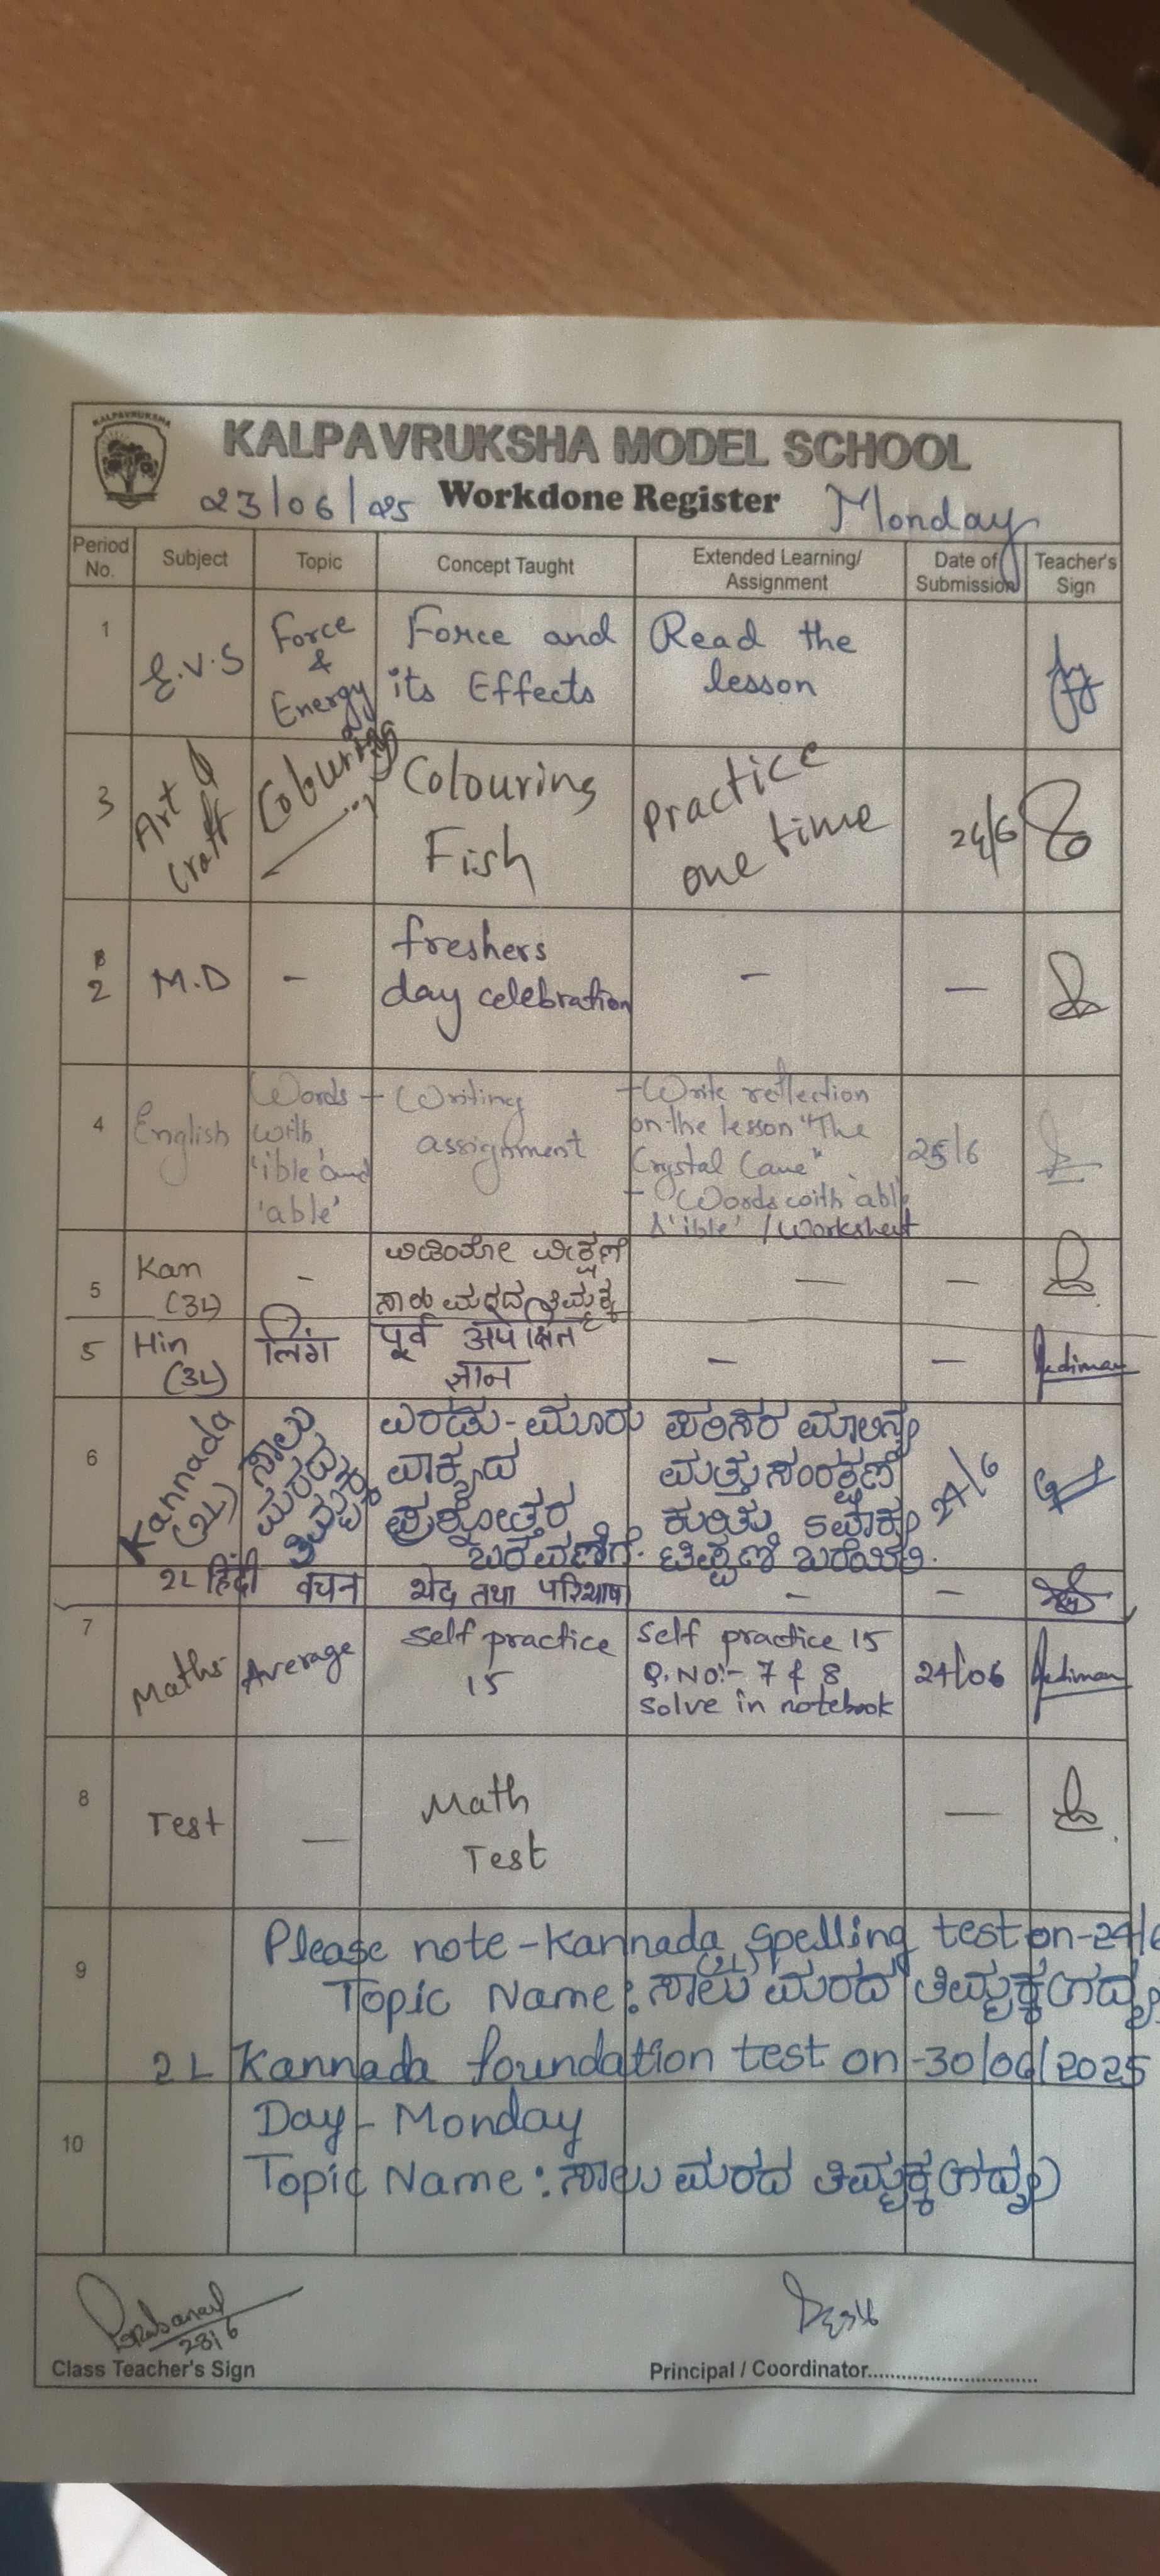 KALPAVRUKSHA
KALPAVRUKSHA MODEL SCHOOL
23/06/25 Workdone Register Monday
Period No. Subject Topic Concept Taught Extended Learning/ Assignment Date of Submission Teacher's Sign
1 E.V.S Force & Energy Force and its Effects Read the lesson
3 Art & Craft Colouring Colouring Fish Practice one time 24/6
2 M.D - freshers day celebration - -
4 English Words with 'ible' and 'able' - Writing assignment - Write reflection on the lesson "The Crystal Cave" - Words with 'able' & 'ible' / Worksheet 25/6
5 Kan (3L) - ವಿಡಿಯೋ ವೀಕ್ಷಣೆ ಸಾಲು ಮರದ ತಿಮ್ಮಕ್ಕ - -
5 Hin (3L) लिंग पूर्व अपेक्षित ज्ञान - -
6 Kannada (2L) ಸಾಲು ಮರದ ತಿಮ್ಮಕ್ಕ ಎರಡು-ಮೂರು ವಾಕ್ಯದ ಪ್ರಶ್ನೋತ್ತರ ಬರವಣಿಗೆ. ಪರಿಸರ ಮಾಲಿನ್ಯ ಮತ್ತು ಸಂರಕ್ಷಣೆ ಕುರಿತು 5 ವಾಕ್ಯ ಟಿಪ್ಪಣಿ ಬರೆಯಿರಿ. 24/6
2L हिंदी वचन भेद तथा परिभाषा - -
7 Maths Average Self practice 15 Self practice 15 Q.No:- 7 & 8 Solve in notebook 24/06
8 Test - Math Test -
9 Please note - Kannada (2L) Spelling test on - 24/6
Topic Name: ಸಾಲು ಮರದ ತಿಮ್ಮಕ್ಕ (ಗದ್ಯ)
2L Kannada foundation test on - 30/06/2025
10 Day - Monday
Topic Name: ಸಾಲು ಮರದ ತಿಮ್ಮಕ್ಕ (ಗದ್ಯ)
23/6
Class Teacher's Sign Principal / Coordinator..............................